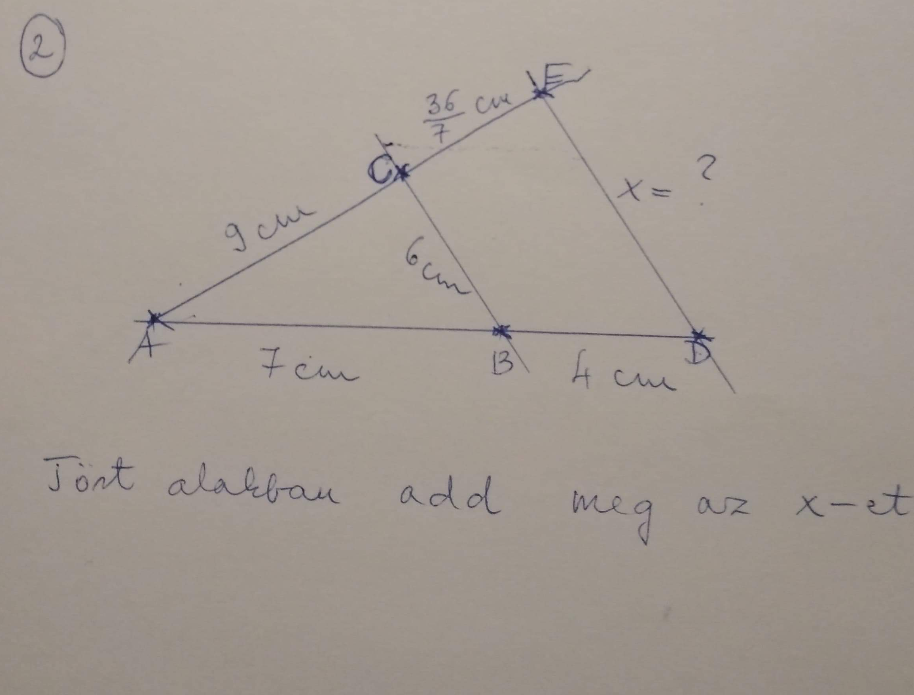 2
E
36/7 cm
C
x = ?
9 cm
6 cm
A
B
D
7 cm
4 cm
Tört alakban add meg az x-et